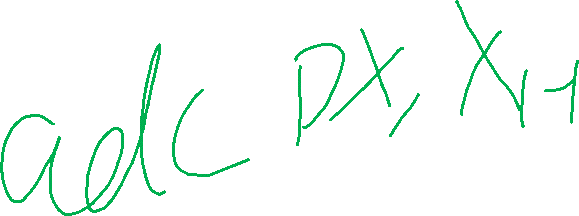 adc DX, XH